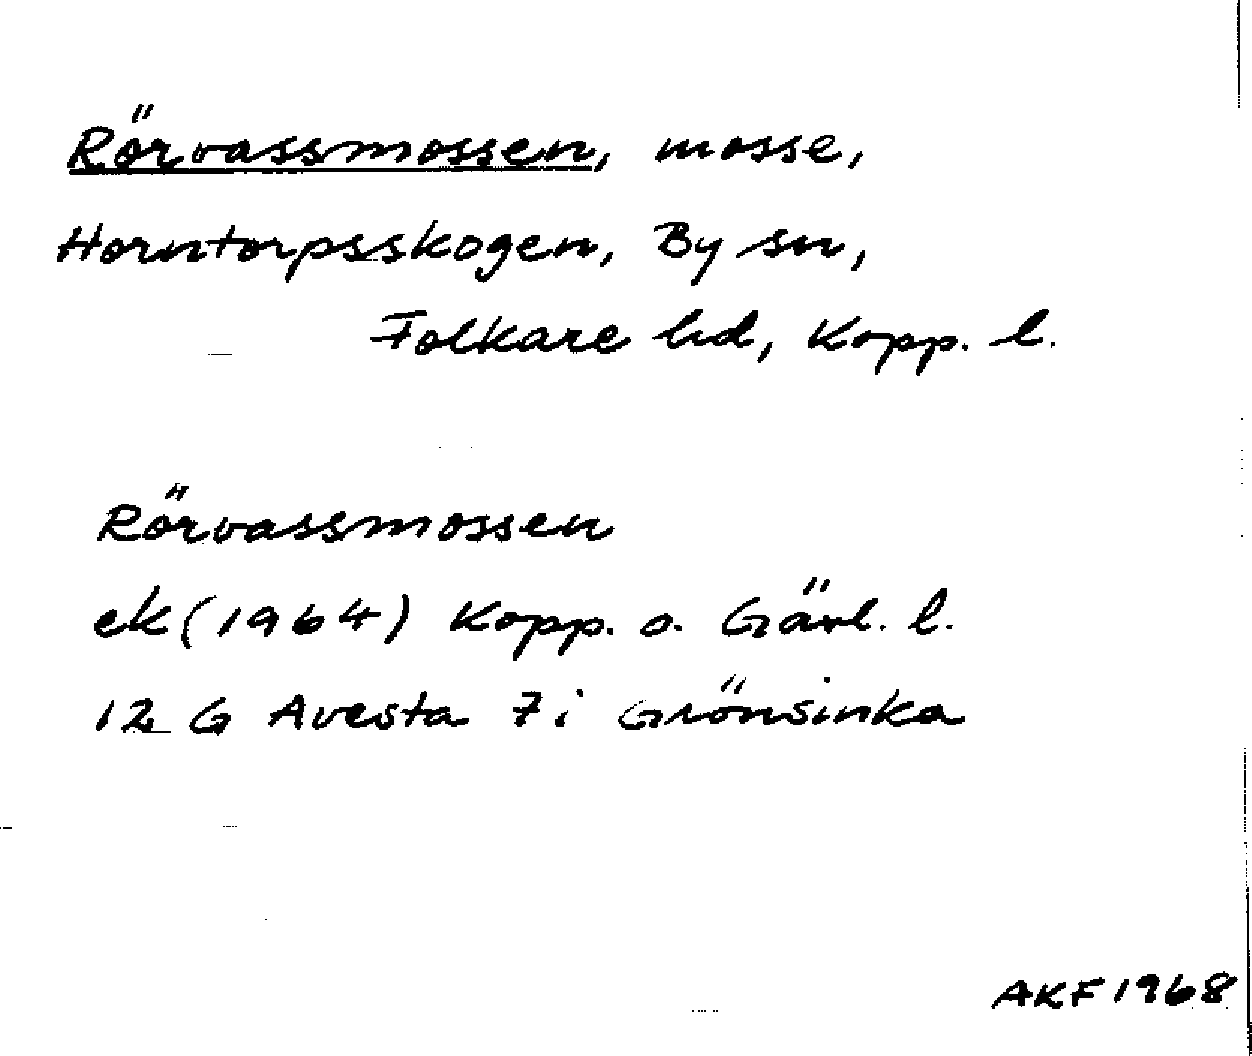 Rörvassmossen, mosse,
Horntorpsskogen, By sn,
Folkare hd, Kopp. l.
Rörvassmossen
ek (1964) Kopp. o. Gävl. l.
12 G Avesta 7 i Grönsinka
AKF 1968